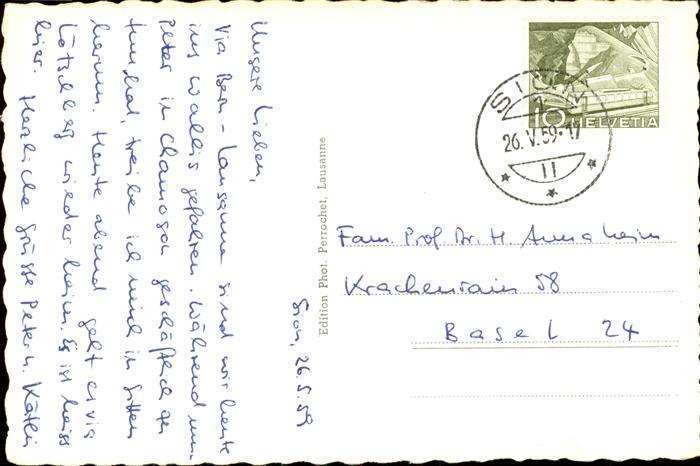 Sion, 26.5.59
Unsere Lieben,
Via Bern - Lausanne sind wir heute
ins Wallis gefahren. Während nun
Peter in Chamoson geschäftlich zu
tun hat, treibe ich mich in Sitten
herum. Heute abend geht es via
Lötschberg wieder heim. Es ist heiss
hier. Herzliche Grüsse Peter u. Käthi
Edition Phot. Perrochet, Lausanne
SION 1
26.V.59-17
II
10 HELVETIA
Fam. Prof. Dr. H. Annaheim
Krachenrain 58
Basel 24